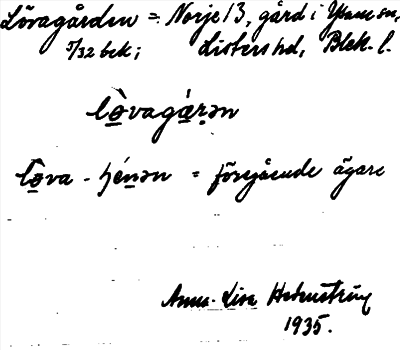 Lövagården = Norje 13, gård i Ysane sn,
5/32 bek; Listers hd, Blek. l.
lo̱vagá̱ṛən
Lo̱va - hé̱nən = föregående ägare
Anna-Lisa Hedenström
1935.